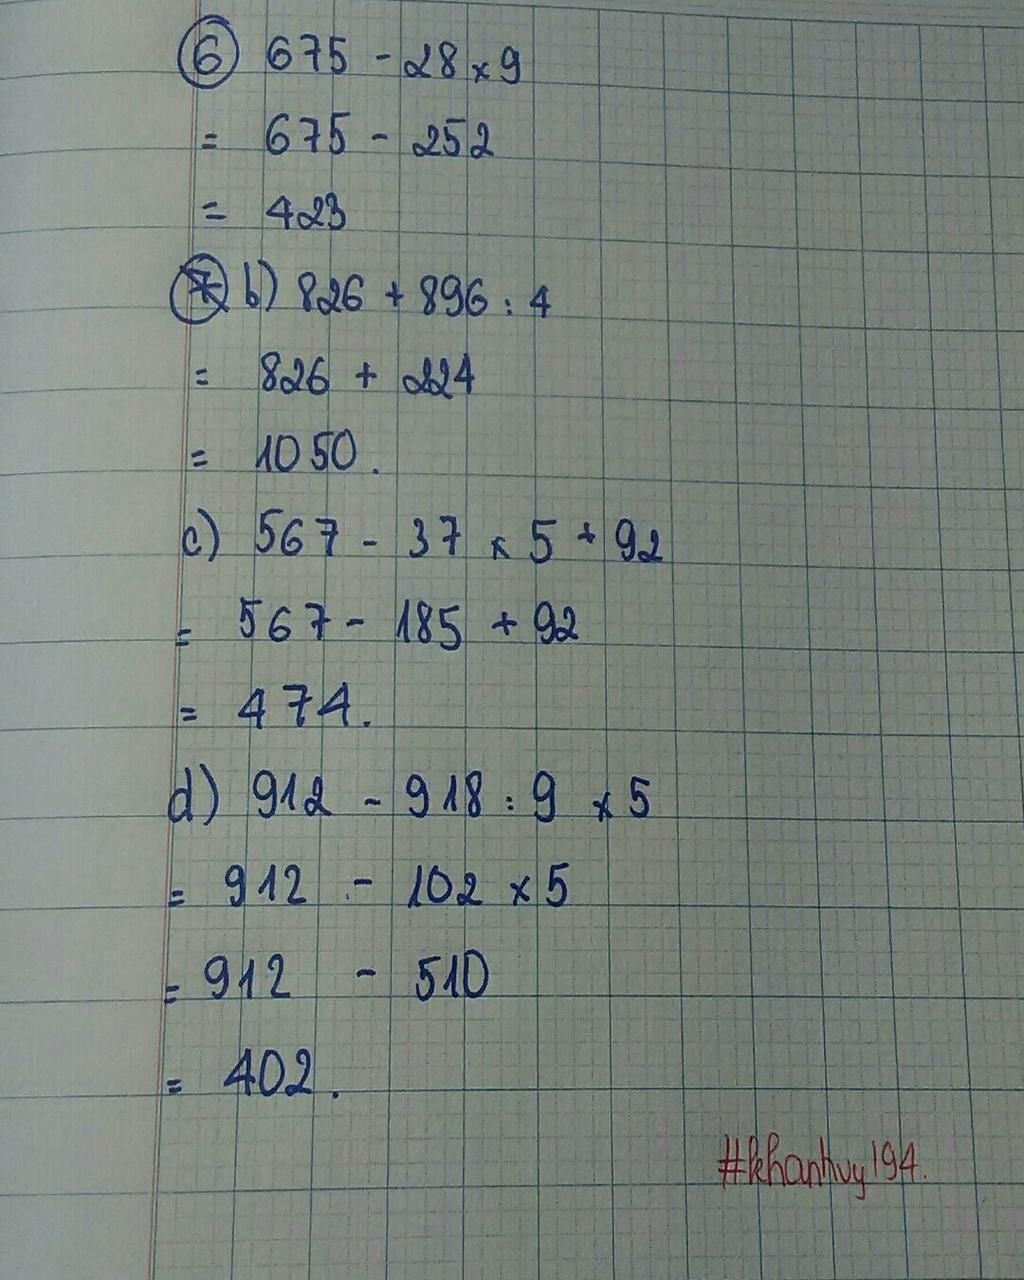 6 675 - 28 x 9
= 675 - 252
= 423
b) 826 + 896 : 4
= 826 + 224
= 1050.
c) 567 - 37 x 5 + 92
= 567 - 185 + 92
= 474.
d) 912 - 918 : 9 x 5
= 912 - 102 x 5
= 912 - 510
= 402.
#khanhvy194.